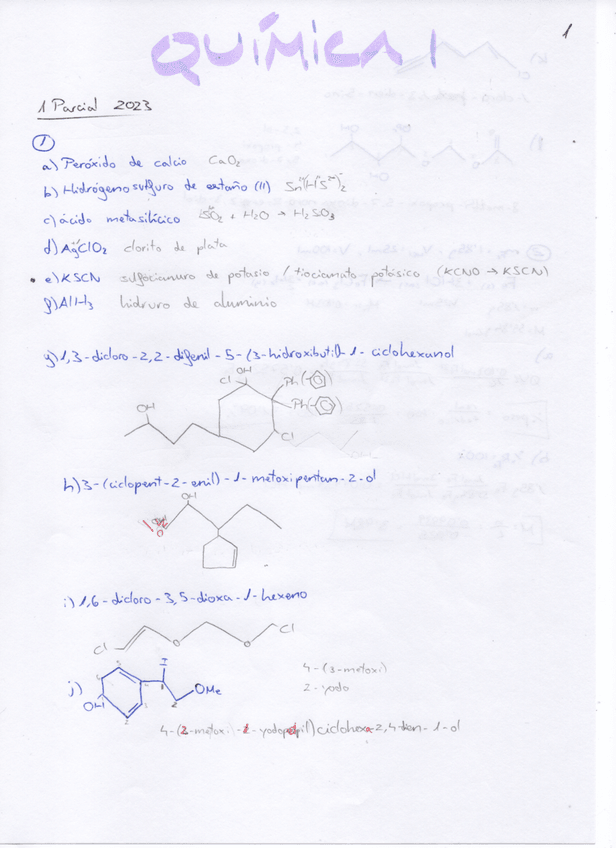 QUÍMICA I
1
1 Parcial 2023
1
a) Peróxido de calcio CaO₂
b) Hidrógenosulfuro de estaño (II) Sn(HS)₂
c) ácido metasilícico + H₂O → H₂SO₃
d) AgClO₂ clorito de plata
e) KSCN sulfocianuro de potasio / tiocianato potásico (KCNO → KSCN)
f) AlH₃ hidruro de aluminio
g) 1,3-dicloro-2,2-difenil-5-(3-hidroxibutil)-1-ciclohexanol
OH
Cl
Ph
OH
Ph
Cl
h) 3-(ciclopent-2-enil)-1-metoxipentan-2-ol
OH
i) 1,6-dicloro-3,5-dioxa-1-hexeno
Cl O O Cl
j) I
OMe
OH
4-(3-metoxi)
2-yodo
ciclohexa-2,4-dien-1-ol